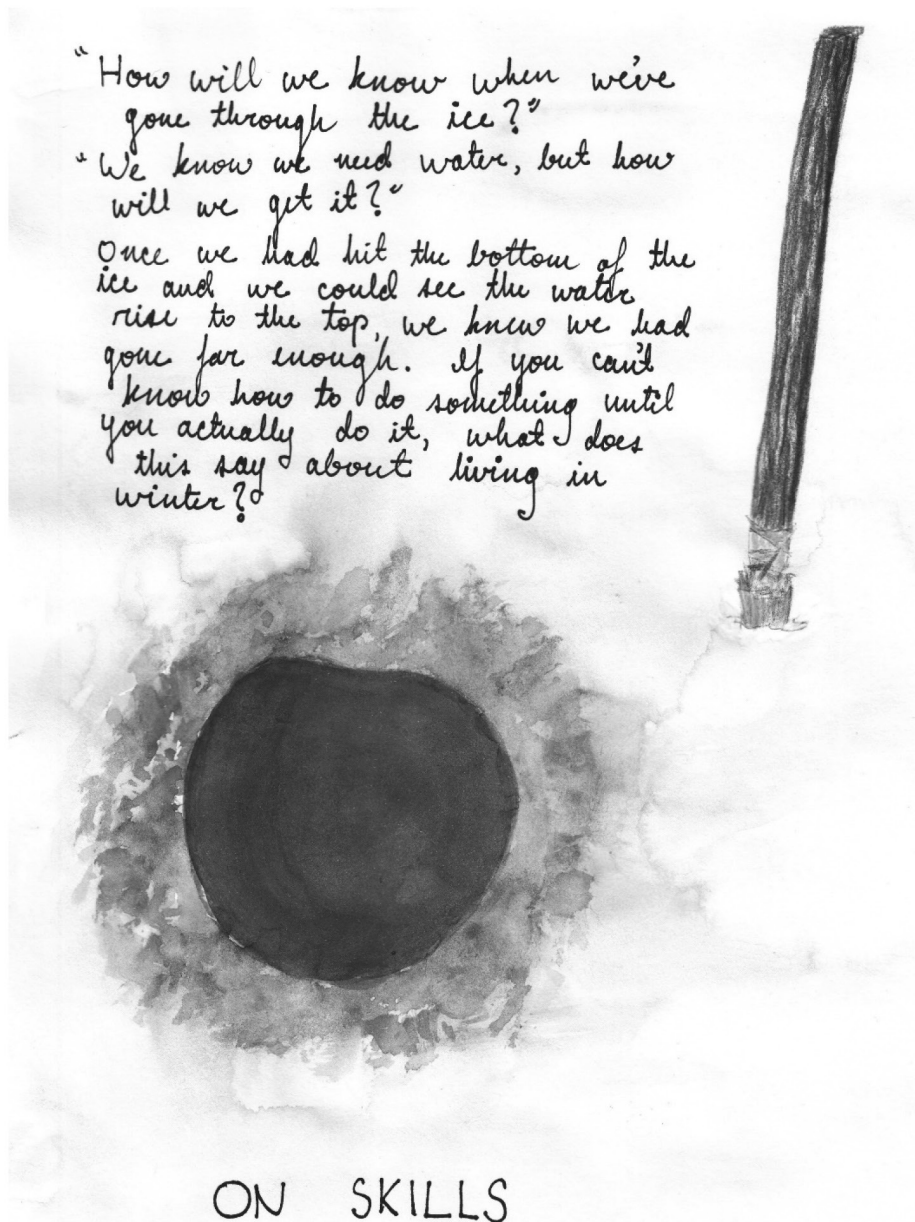 "How will we know when we've
gone through the ice?"
"We know we need water, but how
will we get it?"
Once we had hit the bottom of the
ice and we could see the water
rise to the top, we knew we had
gone far enough. If you can't
know how to do something until
you actually do it, what does
this say about living in
winter?
ON SKILLS